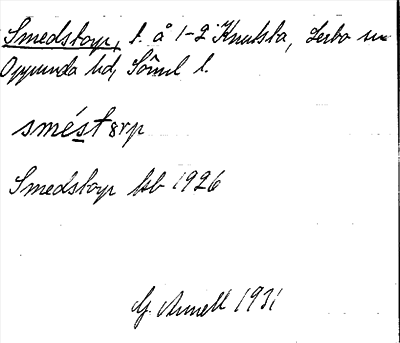 Smedstorp, t. å 1-2 Knutsta, Lerbo sn
Oppunda hd, Söml l.
sméstorp
Smedstorp hsb 1926
G. Annell 1931